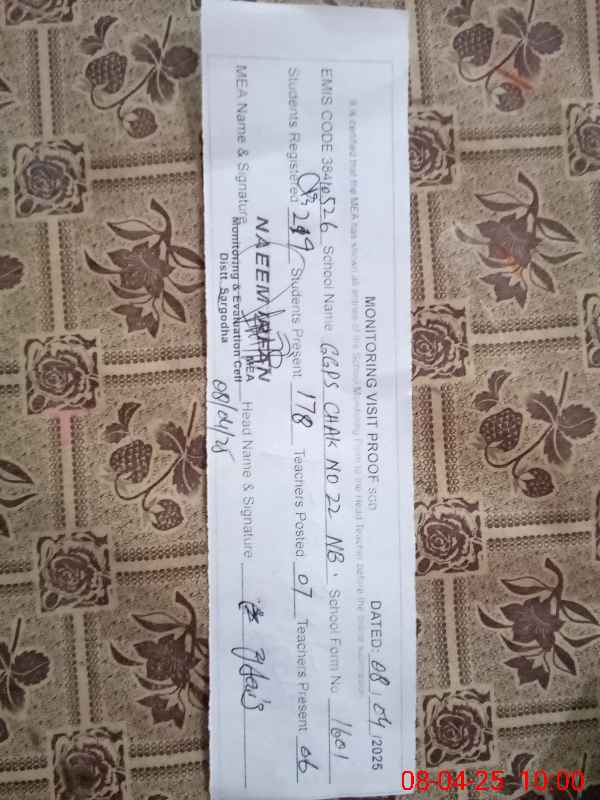 MONITORING VISIT PROOF SGD DATED: 08/04/2025
It is certified that the MEA has shown all entries of the School Monitoring Form to the Head Teacher before the online submission
EMIS CODE 38410526 School Name GGPS CHAK NO 22 NB. School Form No 1601
Students Registered 219 Students Present 178 Teachers Posted 07 Teachers Present 06
MEA Name & Signature Head Name & Signature
NAEEM IRFAN
MEA
Monitoring & Evaluation Cell
Distt. Sargodha
08/04/25
08-04-25 10:00